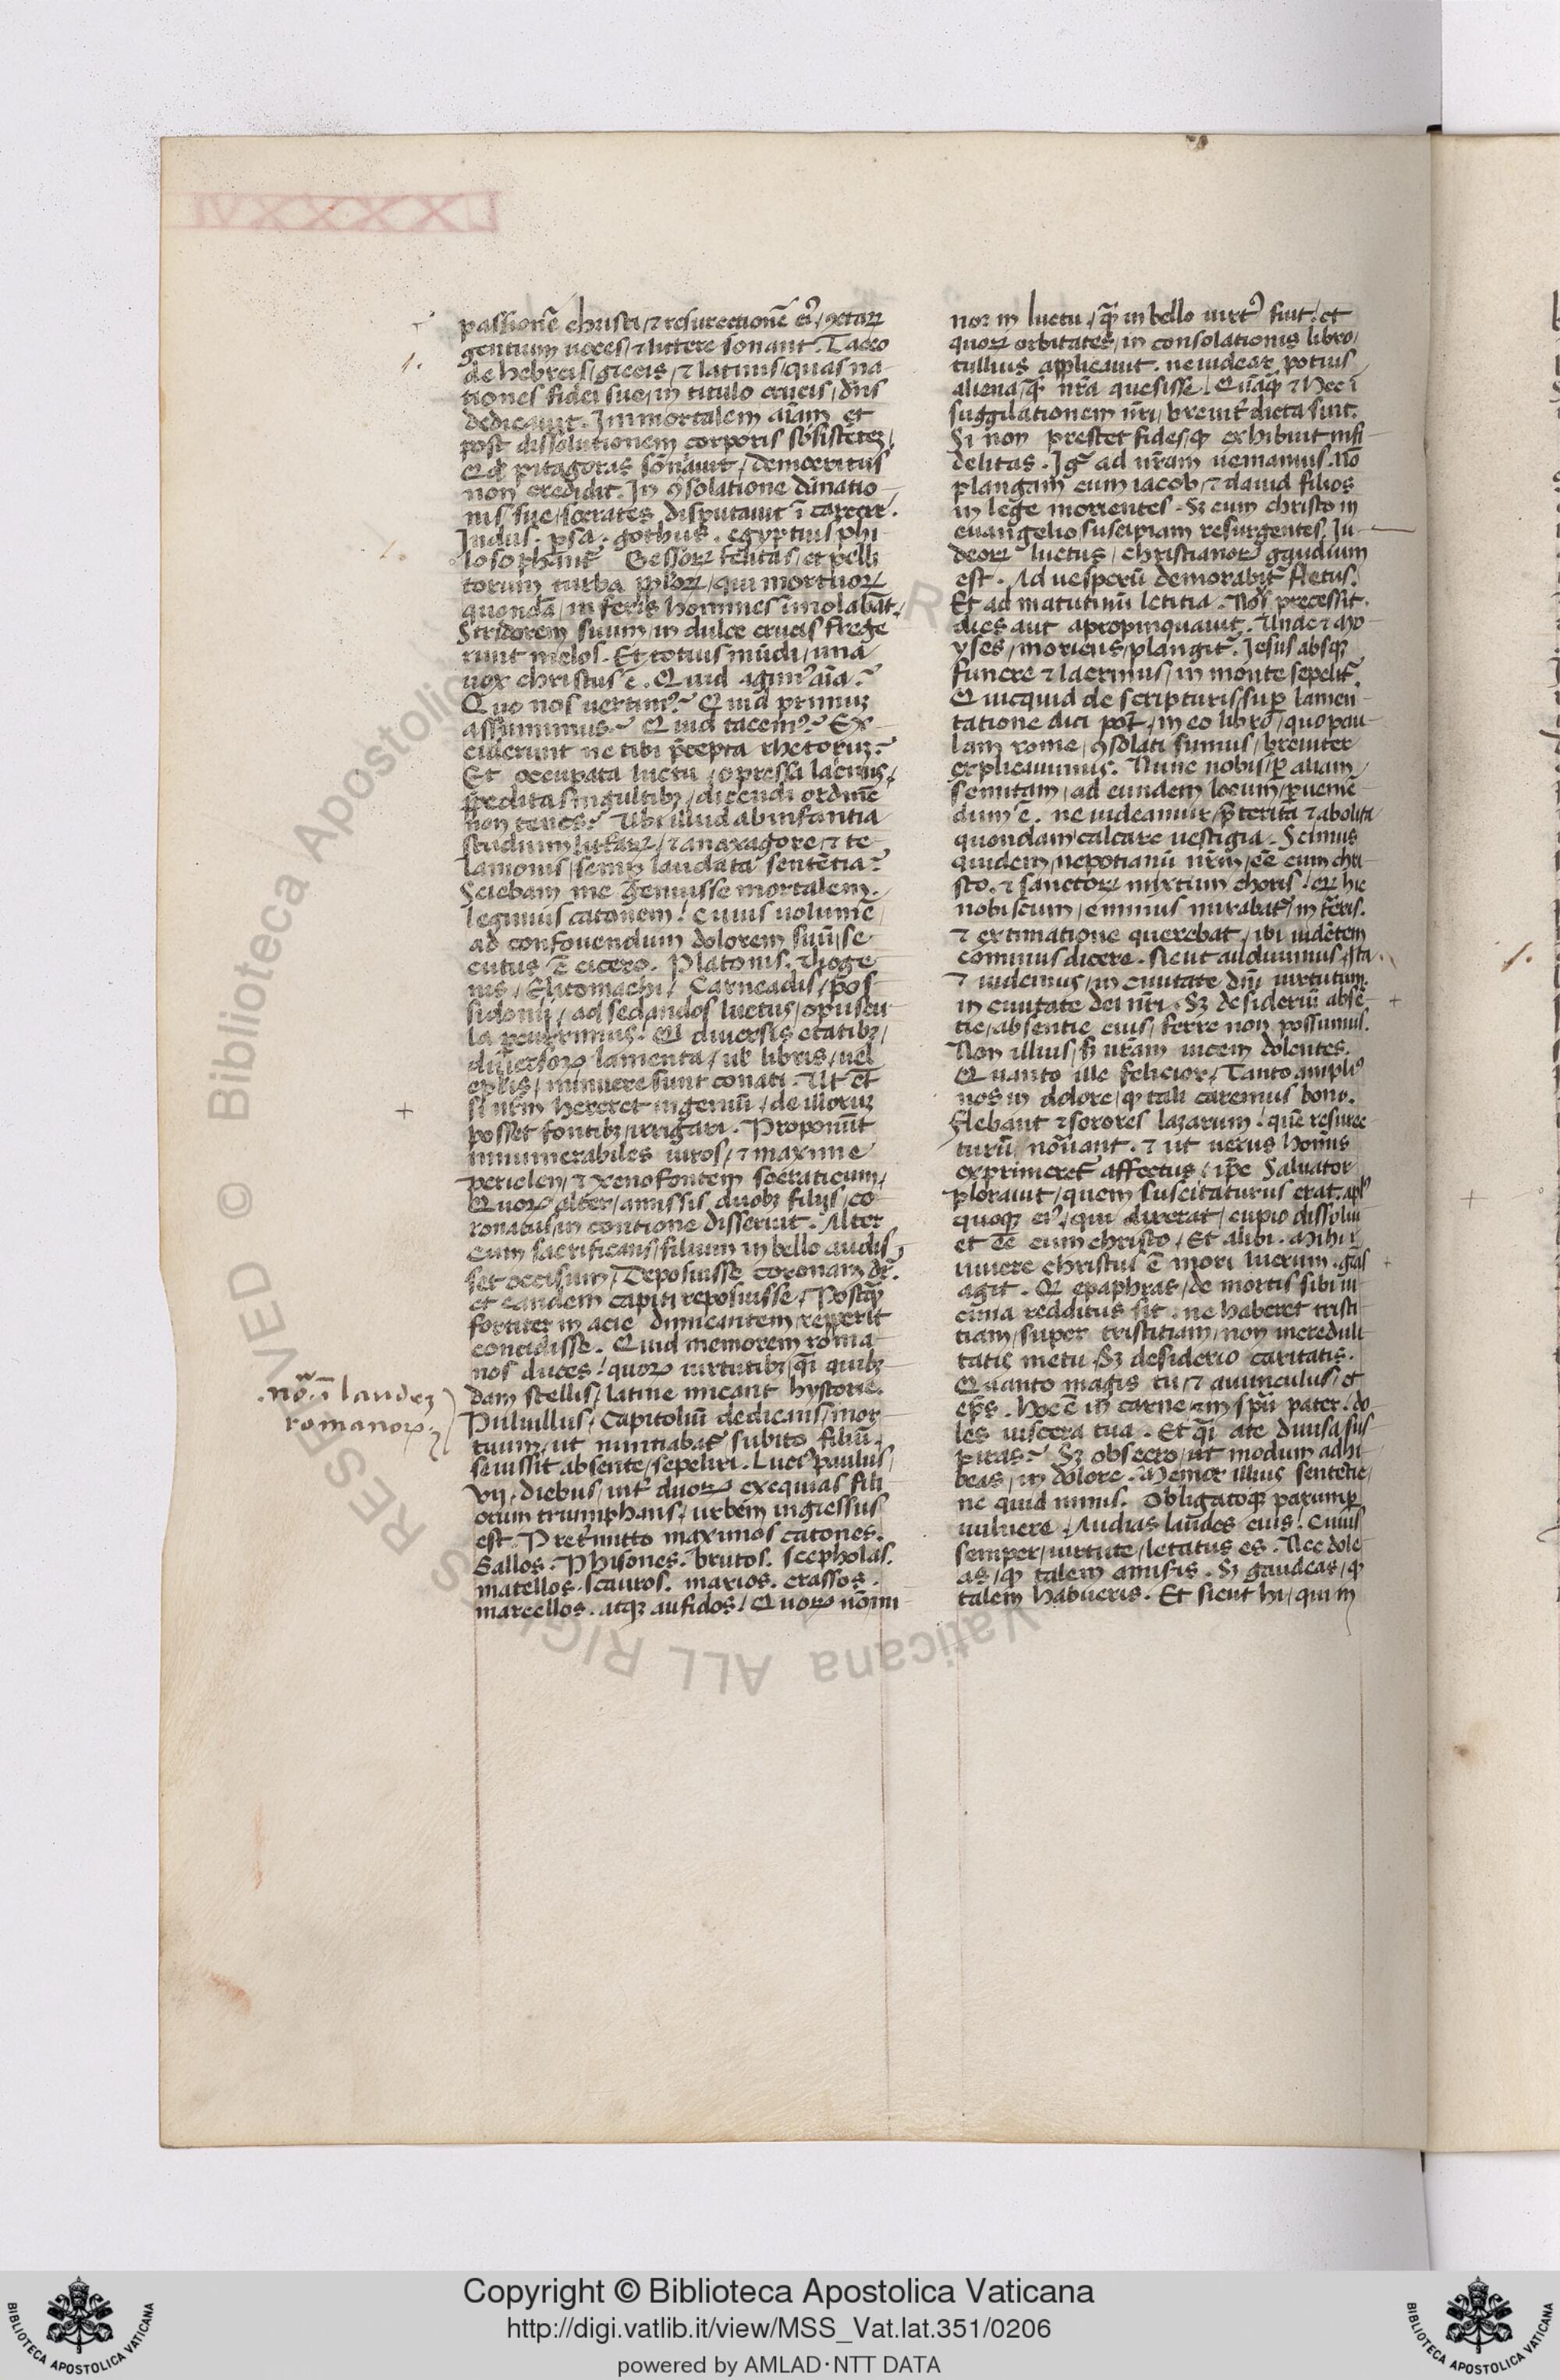 LXXXXVI
passionẽ christi / ⁊ resurectionẽ eiꝰ / ꝯctaꝝ
gentium uoces / ⁊ littere sonant. Taceo
de hebreis / grecis / ⁊ latinis / quas na-
tiones fidei sue / in titulo crucis / dñs
dedicauit. Immortalem aĩam et
post dissolutionem corporis sb̃sistetez /
Qđ pitagoras sõnauit / democritus
non credidit. In ꝯsolatione dãnatio-
nis / sue / socrates disputauit ĩ carcere.
Indus. psa. gothus. egyptius phi-
losophant̃ Bessoꝝ feritas / et pelli
torum turba pplõꝝ / qui mortuoꝝ
quondã / in feris homines ĩmolabãt /
Stridorem suum / in dulce crucis frege
runt melos. Et totius mũdi / una
uox christus ẽ. Quid agimꝰ aĩa ?
Quo nos uertimꝰ ? Quid primuz
assumimus ? Quid tacemꝰ ? Ex-
ciderunt ne tibi p̃cepta rhetoruz ?
Et occupata luctu / opressa lacrimis /
p̃redita singultibꝫ / dicendi ordinẽ
non tenes ? Ubi illud ab infantia
studium litt̃aꝝ / ⁊ anaxagore / ⁊ te-
lamonis / semp̱ laudata sentẽtia ?
Sciebam me genuisse mortalem.
legimus catonem ! Cuius uolumẽ
ad confouendum dolorem suũ / se
cutus ẽ cicero. Platonis. Dioge
nis / Clitomachi / Carneadis / pos-
sidonij / ad sedandos luctus / opuscu-
la percurrimus. Qͥ diuersis etatibꝫ /
diuersoꝝ lamenta / ul̃ libris / uel
ep̃lis / minuere sunt conati. Ut et̃
si nrm̃ hereret ingeniũ / de illoruz
posset fontibꝫ irrigari. Proponũt
innumerabiles uiros / ⁊ maxime
periclen / ⁊ xenofontem socraticum /
Quoꝝ alter / amissis duobꝫ filijs / co
ronatus / in contione disseruit. Alter
cum sacrificans / filium in bello audis
set occisum / Deposuisse coronam dr̃.
et eandem capiti reposuisse / Postq̃
fortiter in acie dimicantem repperit
concidisse. Quid memorem roma
nos duces ! quoꝝ uirtutibꝫ / q̃i quibꝫ
dam stellis / latine micant hystorie.
Puluillus / Capitoliũ dedicans / mor-
tuum / ut nuntiabat̃ subito filiũ /
se iussit absente / sepeliri. Luciꝰ paulus /
vij. diebus / int̃ duoꝝ exequias fili
orum triumphans / urbem ingressus
est. Pret̃mitto maximos catones.
Gallos. Phisones. brutos. scepholas.
matellos. scauros. marios. crassos.
marcellos. atqꝫ aufidos / Quoꝝ nõ mi
.nõ. ĩ laudez
romanoꝝ
nor in luctu / q̃ in bello uirtꝰ fuit. et
quoꝝ orbitates / in consolationis libro /
tullius applicauit. ne uidear potius
aliena / q̃ nr̃a quesisse. Quãq̃ ⁊ hec ĩ
suggilationem nr̃i / breuit̃ dicta sint.
Si non prestet fides / q̃ exhibuit infi-
delitas. Igr̃ ad nr̃am ueniamus. Nõ
plangam cum iacob / ⁊ dauid filios
in lege morientes. Sꝫ cum christo in
euangelio / suscipiam resurgentes. Iu-
deoꝝ luctus / christianoꝝ gaudium
est. Ad uesperũ demorabit̃ fletus.
Et ad matutinũ letitia. Nox precessit.
dies aut apropinquauit. Unde ⁊ mo-
yses / moriens / plangit̃. Iesus absqꝫ
funere ⁊ lacrimis / in monte sepelit̃.
Quicquid de scripturis / sup̱ lamen-
tatione dici pot̃ / in eo libro / quo pau-
lam rome / ꝯsolati sumus / breuiter
explicauimus. Nunc nobis / ꝑ aliam
semitam / ad eundem locum / ꝑueniẽ-
dum ẽ. ne uideamur / p̃terita ⁊ abolita
quondam calcare uestigia. Scimus
quidem / nepotianũ nrm̃ / eẽ cum chri-
sto. ⁊ sanctoꝝ mixtum choris. et hic
nobiscum / eminus mirabat̃ / in t̃eris.
⁊ extimatione querebat / ibi uidẽtem
cominus dicere. Sicut audiuimus / ita
⁊ uidimus / in ciuitate dñi uirtutum
in ciuitate dei nr̃i. Sꝫ desideriũ abse-
tie / absentie eius / ferre non possumus.
Non illius / sꝫ nr̃am uicem dolentes.
Quanto ille felicior / Tanto ampliꝰ
nos in dolore / q̃ tali caremus bono.
Flebant ⁊ sorores lazarum ! quẽ resurrec
turũ / nõuant. ⁊ ut ueros hominis
exprimeret affectus / ip̃e Saluator
plorauit / quem suscitaturus erat. apl̃s
quoqꝫ eiꝰ / qui dixerat / cupio dissolui
et eẽ cum christo / Et alibi. Mihi ĩ
uiuere christus ẽ mori lucrum. gr̃as
agit. Qͥ epaphras / de mortis sibi ui-
cinia redditus sit. ne haberet tristi
tiam / super tristitiam / non increduli-
tatis metu Sꝫ desiderio caritatis.
Quanto magis tu / ⁊ auunculus / et
ep̃s. hoc ẽ in carne ⁊ in spũ pater. do-
les uiscera tua. Et q̃i a te diuisa / sus-
piras ? Sꝫ obsecro / ut modum adhi
beas / in dolore. Memor illius sententie /
ne quid nimis. Obligatoqꝫ parump̱
uulnere / Audias laudes eius ! Cuius
semper / uirtute / letatus es. Nec dole
as / q̃ talem amiseris. Sꝫ gaudeas / q̃
talem habueris. Et sicut hi / qui in
Copyright © Biblioteca Apostolica Vaticana
http://digi.vatlib.it/view/MSS_Vat.lat.351/0206
powered by AMLAD·NTT DATA